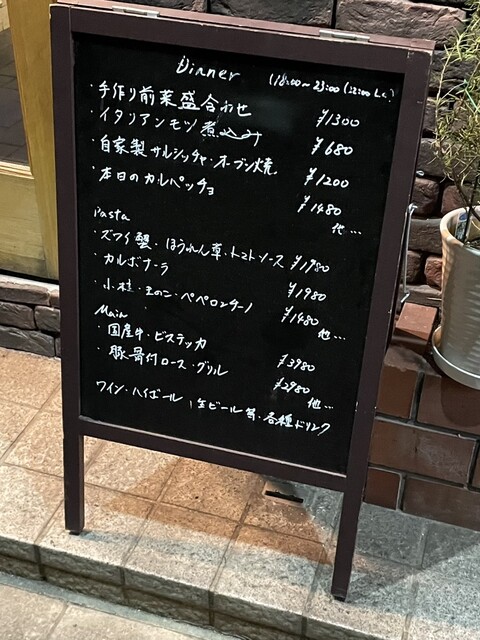 Dinner (18:00~23:00 (22:00 L.o.)
・手作り前菜盛合わせ ¥1300
・イタリアンモツ煮込み ¥680
・自家製サルシッチャ・オーブン焼 ¥1200
・本日のカルパッチョ ¥1480
他...
Pasta
・ズワイ蟹・ほうれん草・トマトソース ¥1980
・カルボナーラ ¥1980
・小柱・きのこ・ペペロンチーノ ¥1480
他...
Main
・国産牛・ビステッカ ¥3980
・豚骨付ロース・グリル ¥2980
他...
ワイン・ハイボール、生ビール等・各種ドリンク